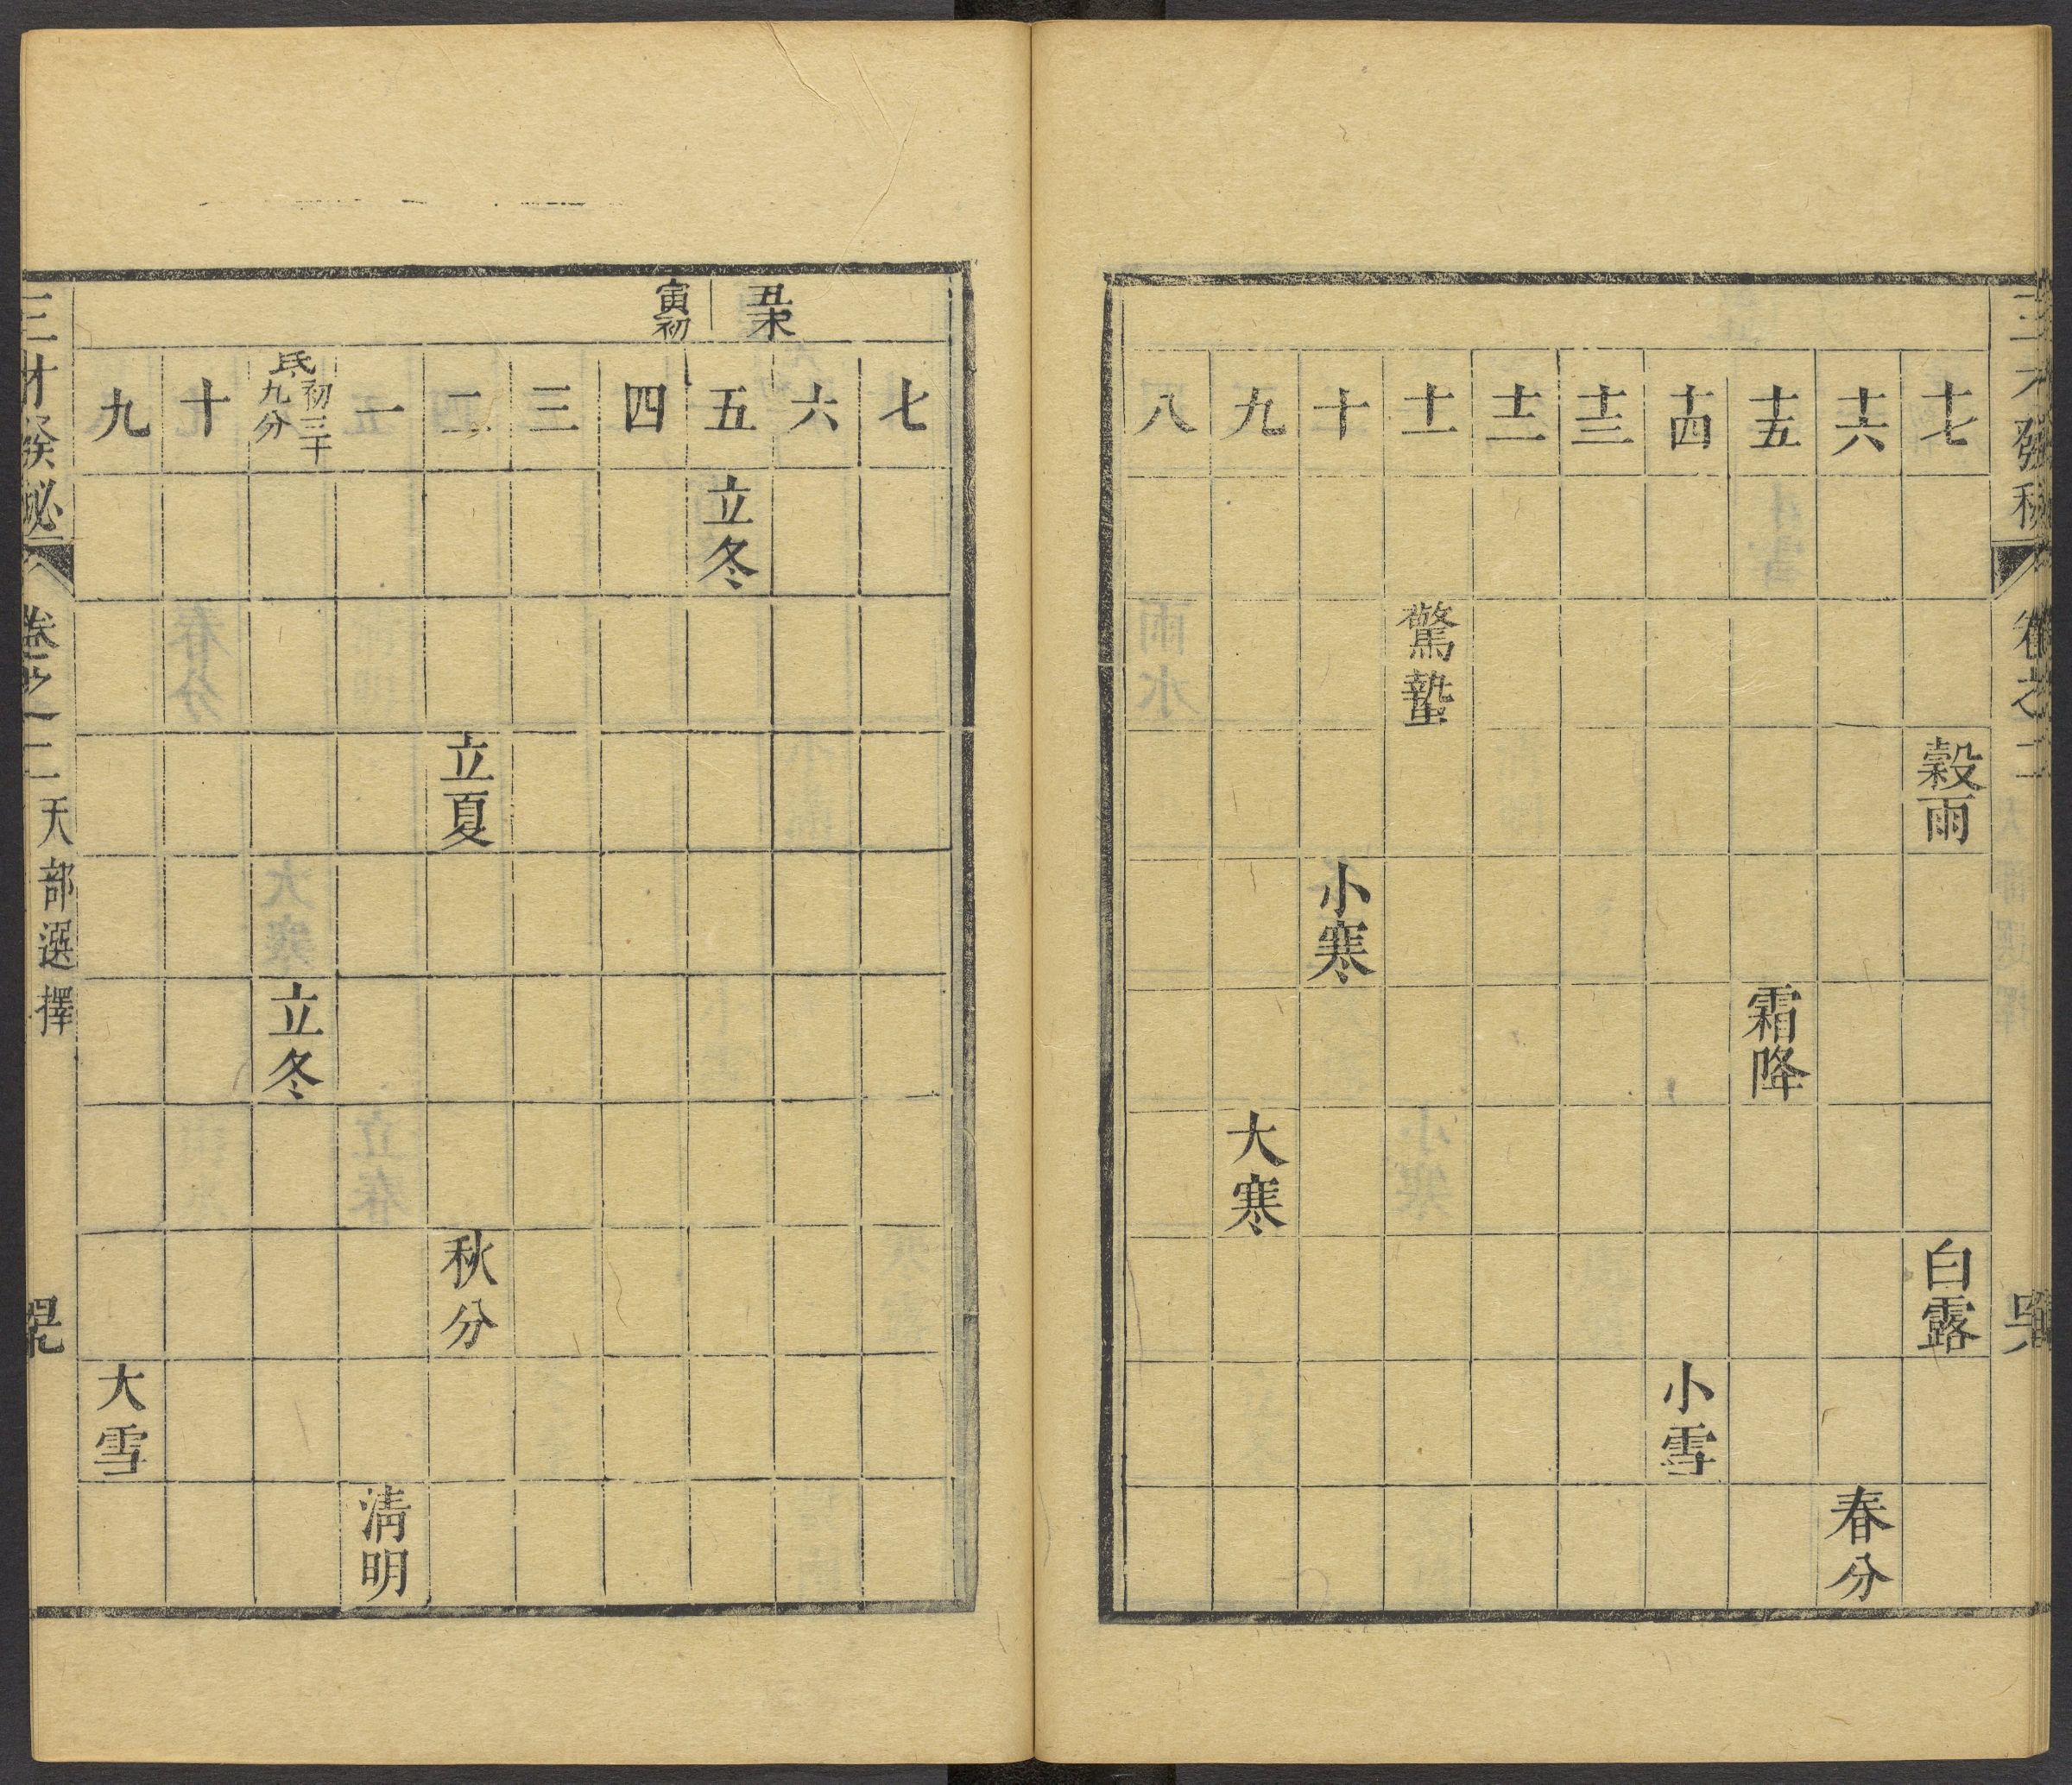 三才發秘
卷之二
十七
穀雨
白露
十六
春分
十五
霜降
十四
小雪
十三
十二
十一
驚蟄
十
小寒
九
大寒
八
七
六
丑末
五
立冬
寅初
四
三
二
立夏
秋分
一
清明
氐初三十九分
立冬
十
九
大雪
三才發秘
卷之二
天部選擇